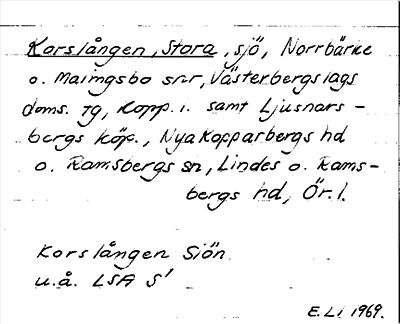 Korslången, Stora, sjö, Norrbärke
o. Malingsbo snr, Västerbergslags
doms. tg, Kopp. l. samt Ljusnars-
bergs köp., Nya Kopparbergs hd
o. Ramsbergs sn, Lindes o. Rams-
bergs hd, Ör. l.
Korslången Sjön
u.å. LSA S'
E. Li 1969.